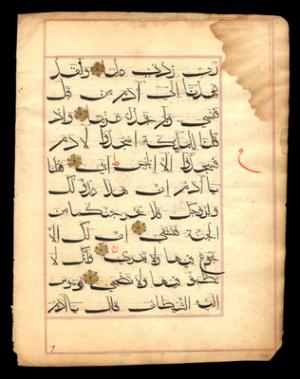 رب زدنی علما ولقد
عهدنا الی آدم من قبل
فنسی ولم نجد له عزما واذ
قلنا للملئکة اسجدوا لآدم
فسجدوا الا ابلیس ابی فقلنا
یا آدم ان هذا عدو لک
ولزوجک فلا یخرجنکما من
الجنة فتشقی ان لک الا
تجوع فیها ولا تعری وانک لا
تظمؤ فیها ولا تضحی فوسوس
الیه الشیطان قال یا آدم